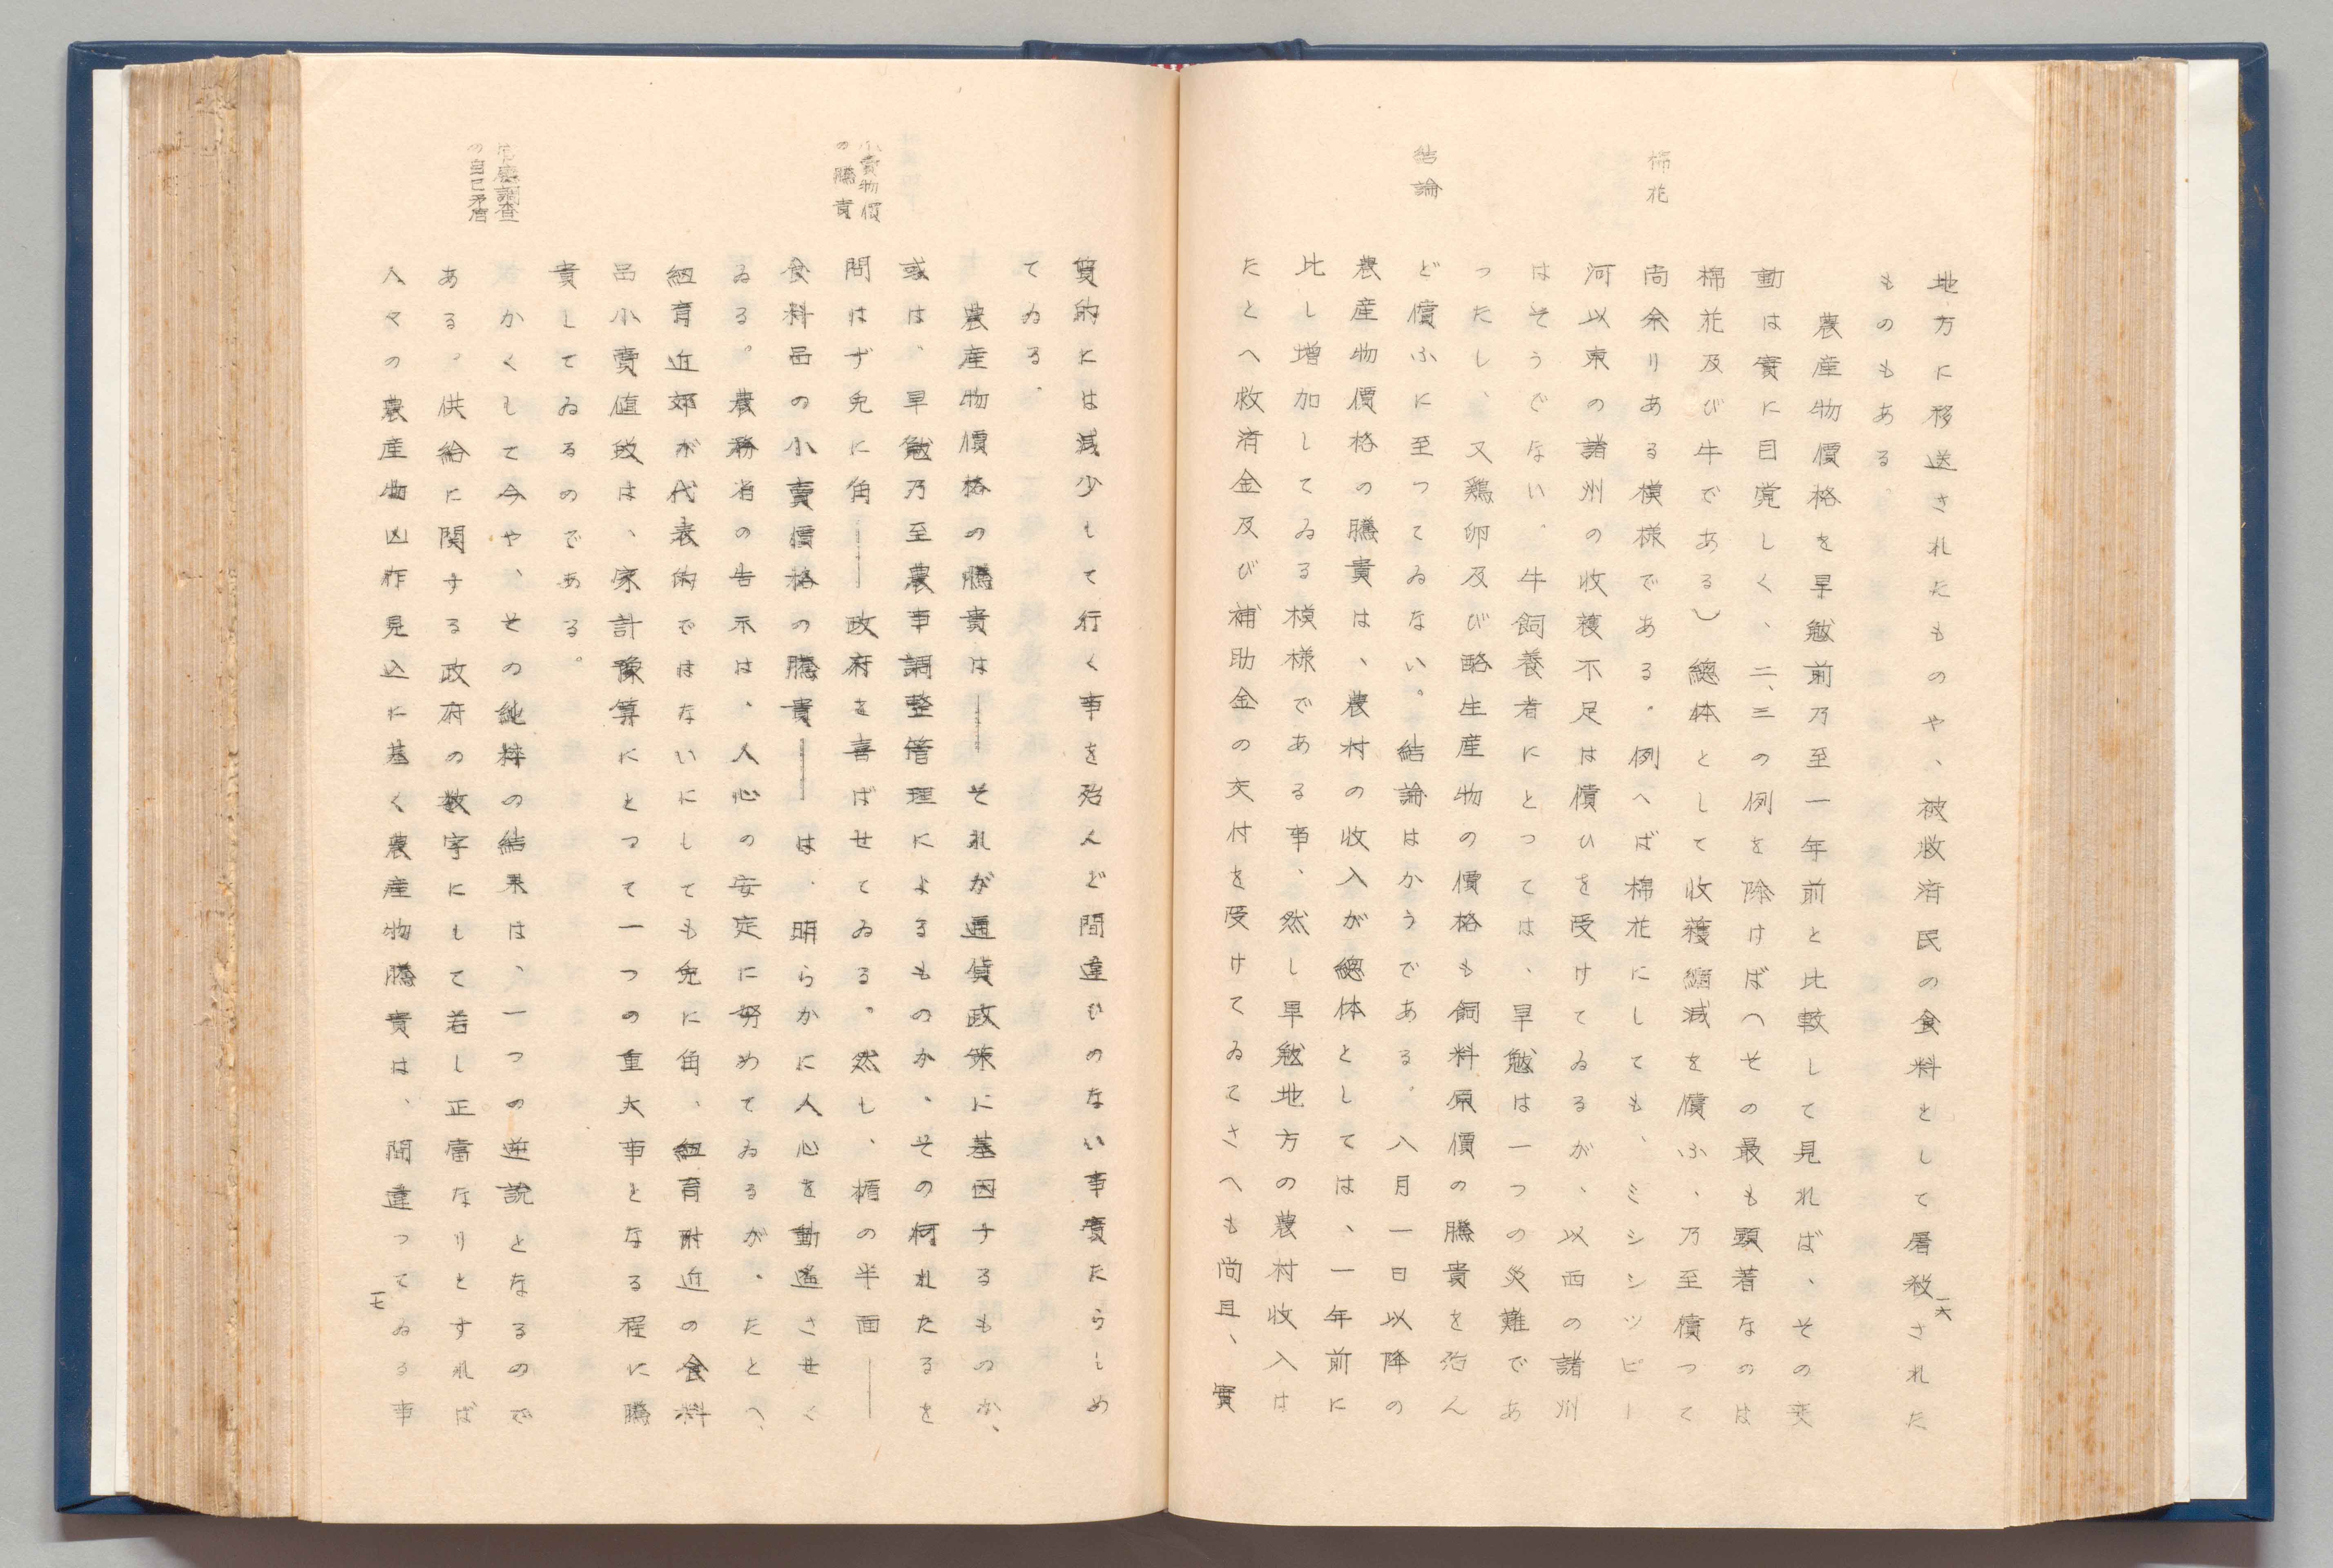 地方に移送されたものや、被救済民の食料として屠殺された
ものもある。
農産物價格を旱魃前乃至一年前と比較して見れば、その変
動は實に目覚しく、二、三の例を除けば（その最も顕著なのは
棉花
棉花及び牛である）總体として收穫縮減を償ふ、乃至償つて
尚余りある模様である。例へば棉花にしても、ミシシツピー
河以東の諸州の收穫不足は償ひを受けてゐるが、以西の諸州
はそうでない。牛飼養者にとつては、旱魃は一つの災難であ
つたし、又鶏卵及び酪生産物の價格も飼料原價の騰貴を殆ん
ど償ふに至つてゐない。結論はかうである。八月一日以降の
結論
農産物價格の騰貴は、農村の收入が總体としては、一年前に
比し増加してゐる模様である事、然し旱魃地方の農村收入は
たとへ救済金及び補助金の交付を受けてゐてさへも尚且、實
一六
質的には減少して行く事を殆んど間違ひのない事實たらしめ
てゐる。
農産物價格の騰貴は―それが通貨政策に基因するものか、
或は、旱魃乃至農事調整管理によるものか、その何れたるを
小賣物價
の騰貴
問はず兎に角――政府を喜ばせてゐる。然し、楯の半面――
食料品の小賣價格の騰貴――は、明らかに人心を動遥させく
ゐる。農務省の告示は、人心の安定に努めてゐるが、たとへ、
紐育近郊が代表的ではないにしても兎に角、紐育附近の食料
品小賣値段は、家計豫算にとつて一つの重大事となる程に騰
貴してゐるのである。
かくして今や、その純粋の結果は、一つの逆説となるので
調査
の自己矛盾
ある。供給に関する政府の数字にして若し正當なりとすれば
人々の農産物凶作見込に基く農産物騰貴は、間違つてゐる事
一七